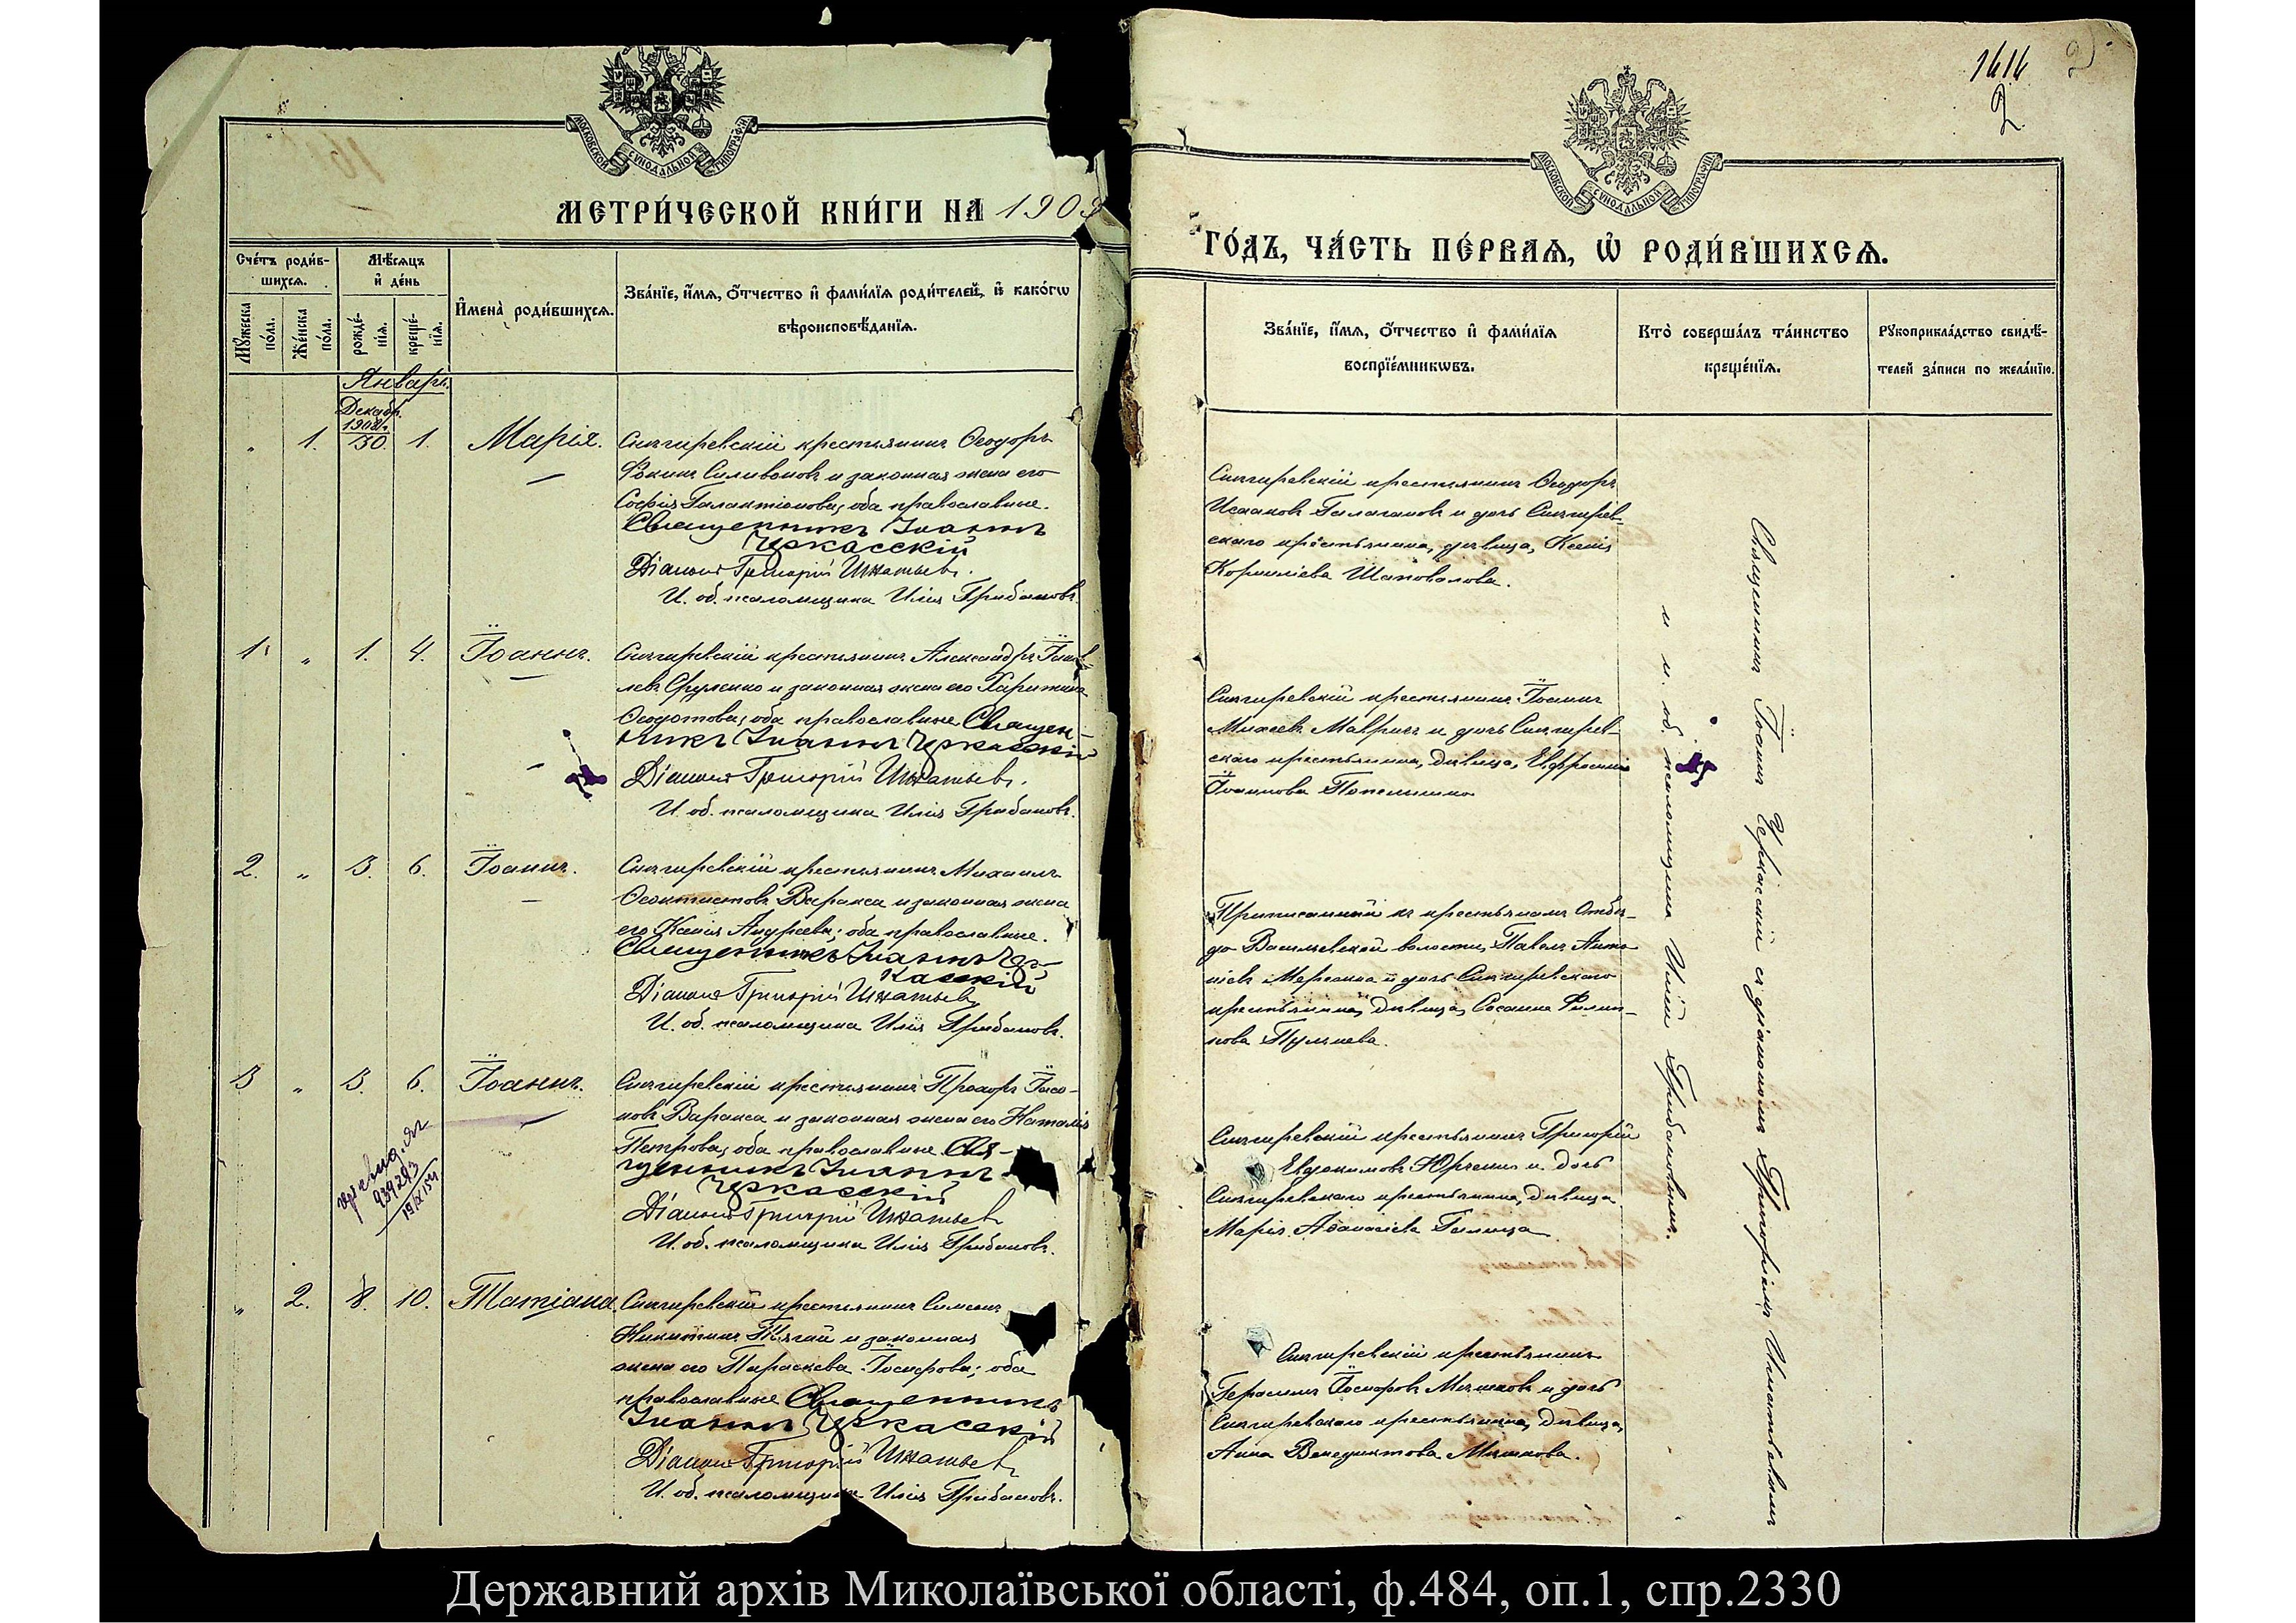 МОСКОВСКОЙ СѴНОДАЛЬНОЙ ТИПОГРАФІИ
МЕТРИ́ЧЕСКОЙ КНИ́ГИ НА 1909
Сче́тъ роди́в-
шихсѧ.
Мѣ́сѧцъ
и҆ де́нь
Мꙋ́жеска по́ла.
Же́нска по́ла.
рожде́-
нїѧ.
креще́-
нїѧ.
И҆мена̀ роди́вшихсѧ.
Зва́нїе, и҆́мѧ, ѻ҆́тчество и҆ фами́лїѧ роди́телей, и҆ како́гѡ
вѣроисповѣ́данїѧ.
Январь.
Декабр.
1908 г.
" 1. 30. 1. Марія. Снигиревскій крестьянинъ Ѳеодоръ
Фокинъ Силивоновъ и законная жена его
Софія Галактіонова; оба православные.
Священникъ Іоаннъ
Черкасскій
Діаконъ Григорій Игнатьевъ.
И. об. псаломщика Илія Грибановъ.
1. " 1. 4. Іоаннъ. Снигиревскій крестьянинъ Александръ Іаков-
левъ и законная жена его Харитина
Ѳеодотова; оба православные Священ-
никъ Іоаннъ Черкасскій
Діаконъ Григорій Игнатьевъ.
И. об. псаломщика Илія Грибановъ.
2. " 3. 6. Іоаннъ. Снигиревскій крестьянинъ Михаилъ
Ѳеоктистовъ Варакса и законная жена
его Ксенія Андреева; оба православные.
Священникъ Іоаннъ Чер-
касскій
Діаконъ Григорій Игнатьевъ
И. об. псаломщика Илія Грибановъ.
3 " 3. 6. Іоаннъ. Снигиревскій крестьянинъ Прохоръ Іасо-
новъ Варакса и законная жена его Наталія
Петрова; оба православные. Свя-
щенникъ Іоаннъ
Черкасскій
Діаконъ Григорій Игнатьевъ
И. об. псаломщика Илія Грибановъ.
" 2. 8. 10. Татіана. Снигиревскій крестьянинъ Симеонъ
Никитинъ и законная
жена его Параскева Іосифова; оба
православные Священникъ
Іоаннъ Черкасскій
Діаконъ Григорій Игнатьевъ
И. об. псаломщика Илія Грибановъ.
1616
2
МОСКОВСКОЙ СѴНОДАЛЬНОЙ ТИПОГРАФІИ
ГО́ДЪ, ЧА́СТЬ ПЕ́РВАѦ, Ѡ҆ РОДИ́ВШИХСѦ.
Зва́нїе, и҆́мѧ, ѻ҆́тчество и҆ фами́лїѧ
воспрїе́мникѡвъ.
Кто̀ соверша́лъ та́инство
креще́нїѧ.
Рꙋкоприкла́дство свидѣ́-
телей за́писи по жела́нїю.
Снигиревскій крестьянинъ Ѳеодоръ
Исааковъ Галагановъ и дочь Снигирев-
скаго крестьянина, дѣвица, Ксенія
Корнилієва Шаповалова.
Снигиревскій крестьянинъ Іоаннъ
и дочь Снигирев-
скаго крестьянина, дѣвица, Евфросинія
Іоаннова
Приписанный къ крестьянамъ
Васильевской волости, Павелъ Анто-
ніевъ и дочь Снигиревскаго
крестьянина, дѣвица, Сосанна Филип-
пова
Снигиревскій крестьянинъ Григорій
Евдокимовъ Юрченко и дочь
Снигиревскаго крестьянина, дѣвица
Марія Аѳанасіева
Снигиревскій крестьянинъ
Герасимъ Іосифовъ Мишковъ и дочь
Снигиревскаго крестьянина, дѣвица,
Анна Венедиктова Мишкова.
Священникъ Іоаннъ Черкасскій съ діакономъ Григоріемъ Игнатьевымъ
и и. об. псаломщика Иліей Грибановымъ.
Державний архів Миколаївської області, ф.484, оп.1, спр.2330